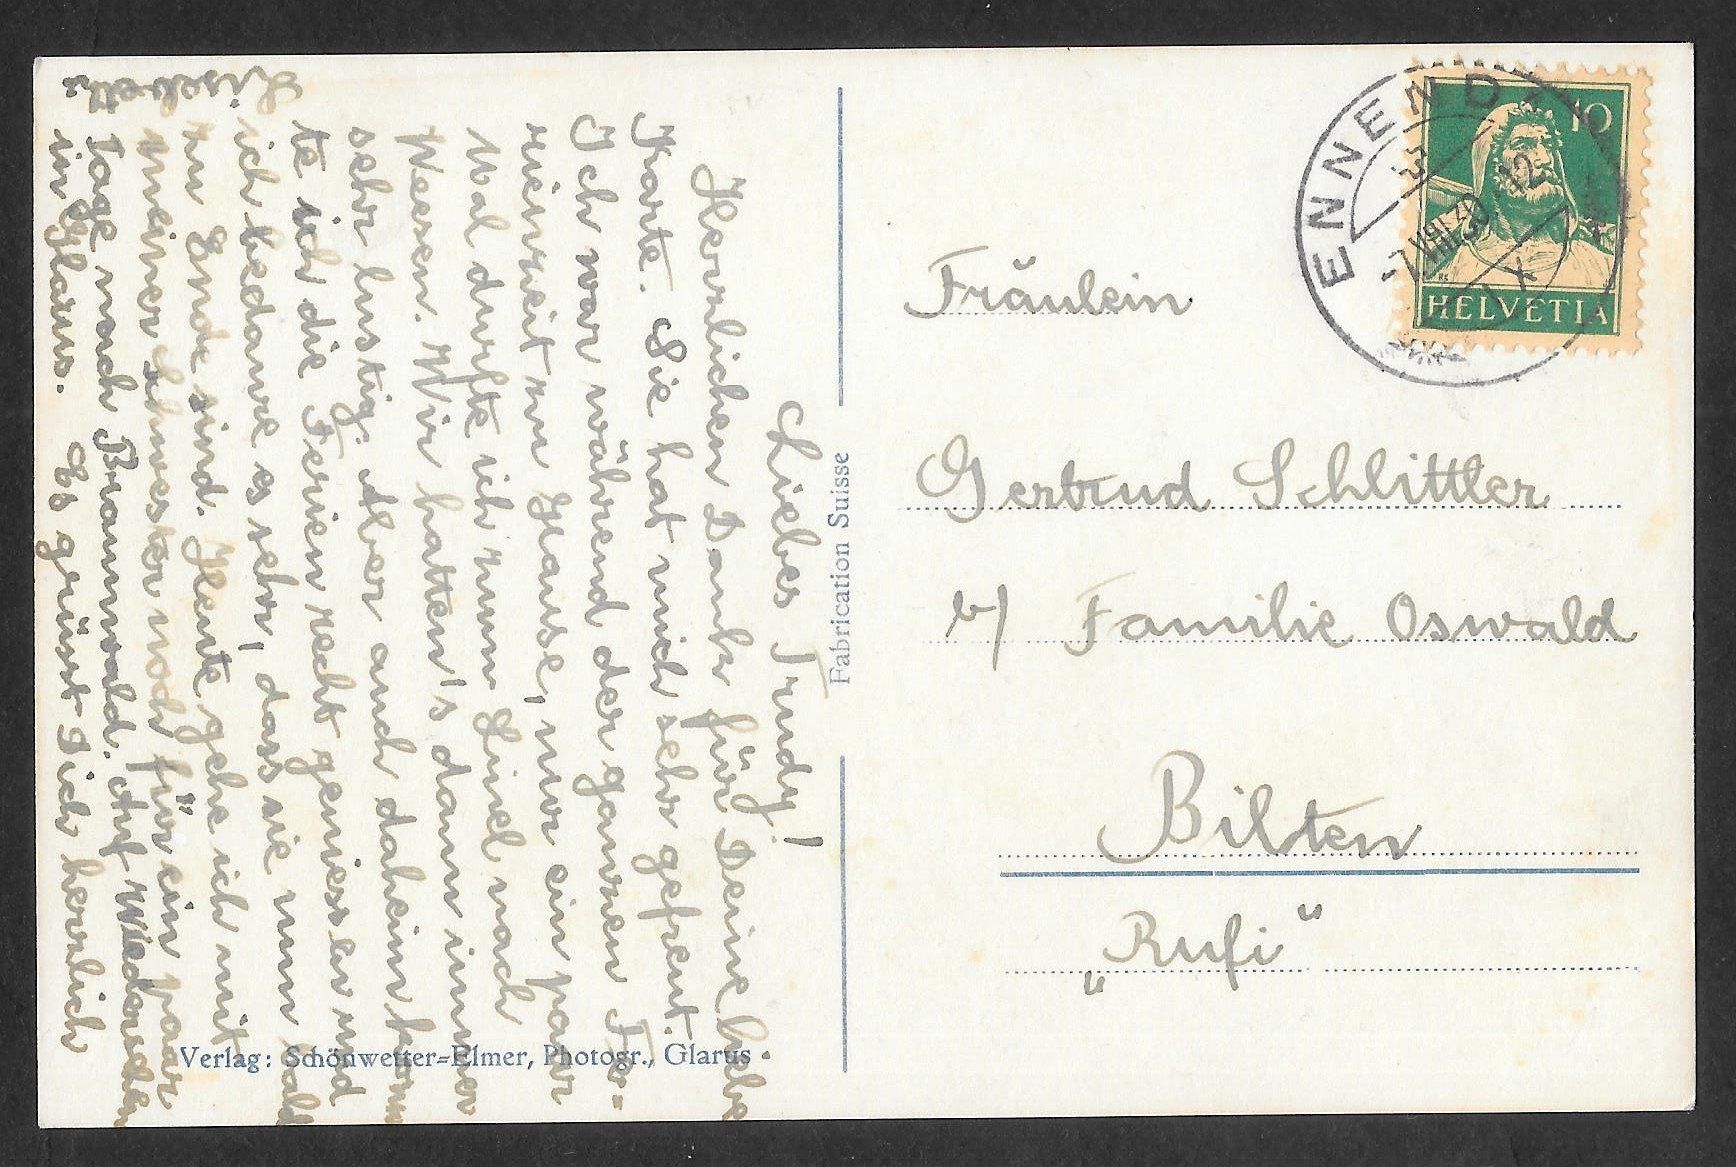 Liebes Trudy!
Herzlichen Dank für Deine liebe
Karte. Sie hat mich sehr gefreut.
Ich war während der ganzen Fe-
rienzeit zu Hause, nur ein paar
Mal durfte ich zum Sinel nach
Weesen. Wir hatten's dann immer
sehr lustig. Aber auch daheim konn
te ich die Ferien recht geniessen und
ich bedaure es sehr, dass sie nun bald
zu Ende sind. Heute gehe ich mit
meiner Schwester noch für ein paar
Tage nach Braunwald. Auf Wiedersehen
in Glarus. Es grüsst Dich herzlich
Fabrication Suisse
Verlag: Schönwetter=Elmer, Photogr., Glarus.
ENNENDA
-7.VIII.30 12
10
HELVETIA
Fräulein
Gertrud Schlittler
b/ Familie Oswald
Bilten
„Rufi"